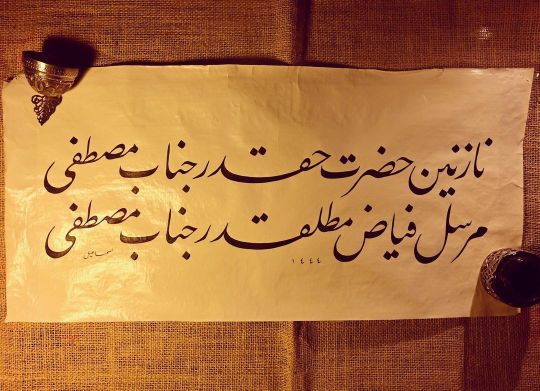 نازنین حضرت حقدر جناب مصطفی
مرسل فیاض مطلقدر جناب مصطفی
١٤٤٤